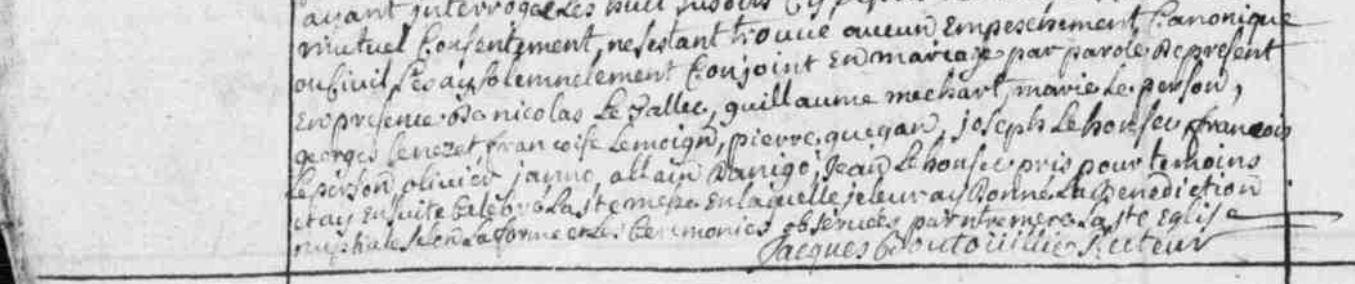 ayant interrogé les huit susdits
mutuel Consentement, ne sestant trouué aucun Empeschement Canonique
ou Ciuil, ses ay solemnelement Conjoint En mariage par parole De present
En presence De nicolas Le Vallec, guillaume mechart, marie Le person,
georges lenezet, francoise Lemoign, pierre guegan, joseph Le housec francois
Le person, oliuier janno, allain Danigo, Jean Le housec pris pour temoins
et ay Ensuite Celebré La ste messe En laquelle je leur ay Donne La Benediction
nuptiale selon La forme et Les Ceremonies obseruées par ntre mere La ste Eglise
Jacques Recteur